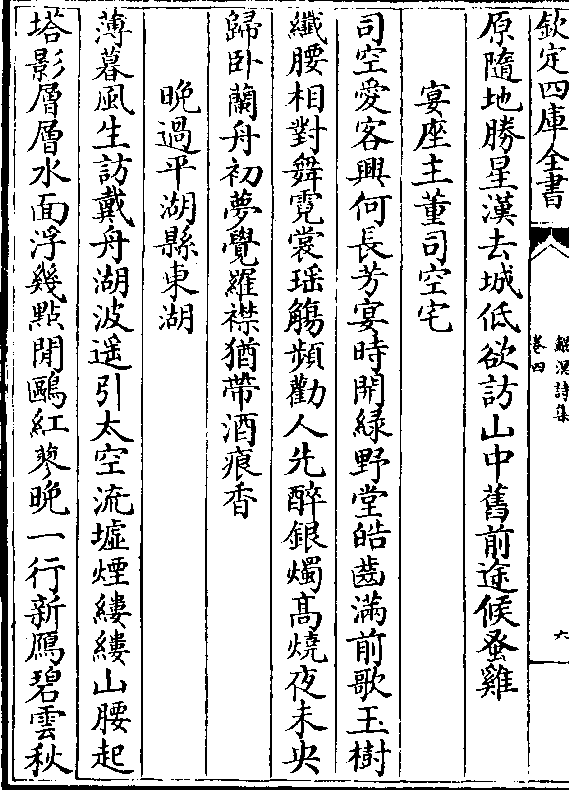 欽定四庫全書
鯤溟詩集
卷四
六
原隨地勝星漢去城低欲訪山中舊前途候蚤雞
宴座主董司空宅
司空愛客興何長芳宴時開緑野堂皓齒滿前歌玉樹
纖腰相對舞霓裳瑶觴頻勸人先醉銀燭髙燒夜未央
歸卧蘭舟初夢覺羅襟猶帶酒痕香
晚過平湖縣東湖
薄暮風生訪戴舟湖波遥引太空流墟煙縷縷山腰起
塔影層層水面浮幾點閒鷗紅蓼晚一行新鴈碧雲秋